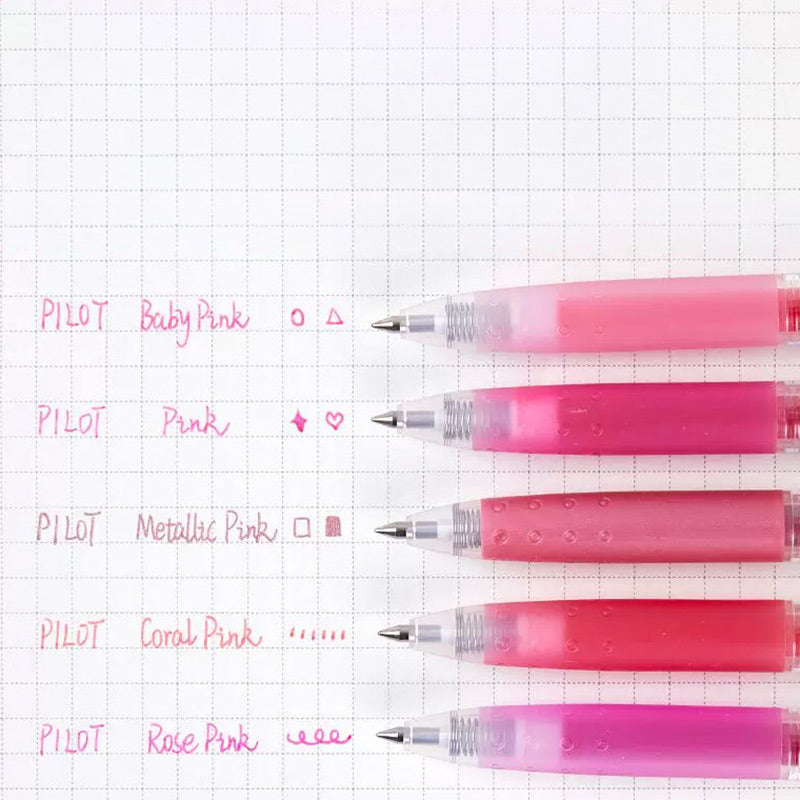 PILOT Baby Pink
PILOT Pink
PILOT Metallic Pink
PILOT Coral Pink
PILOT Rose Pink